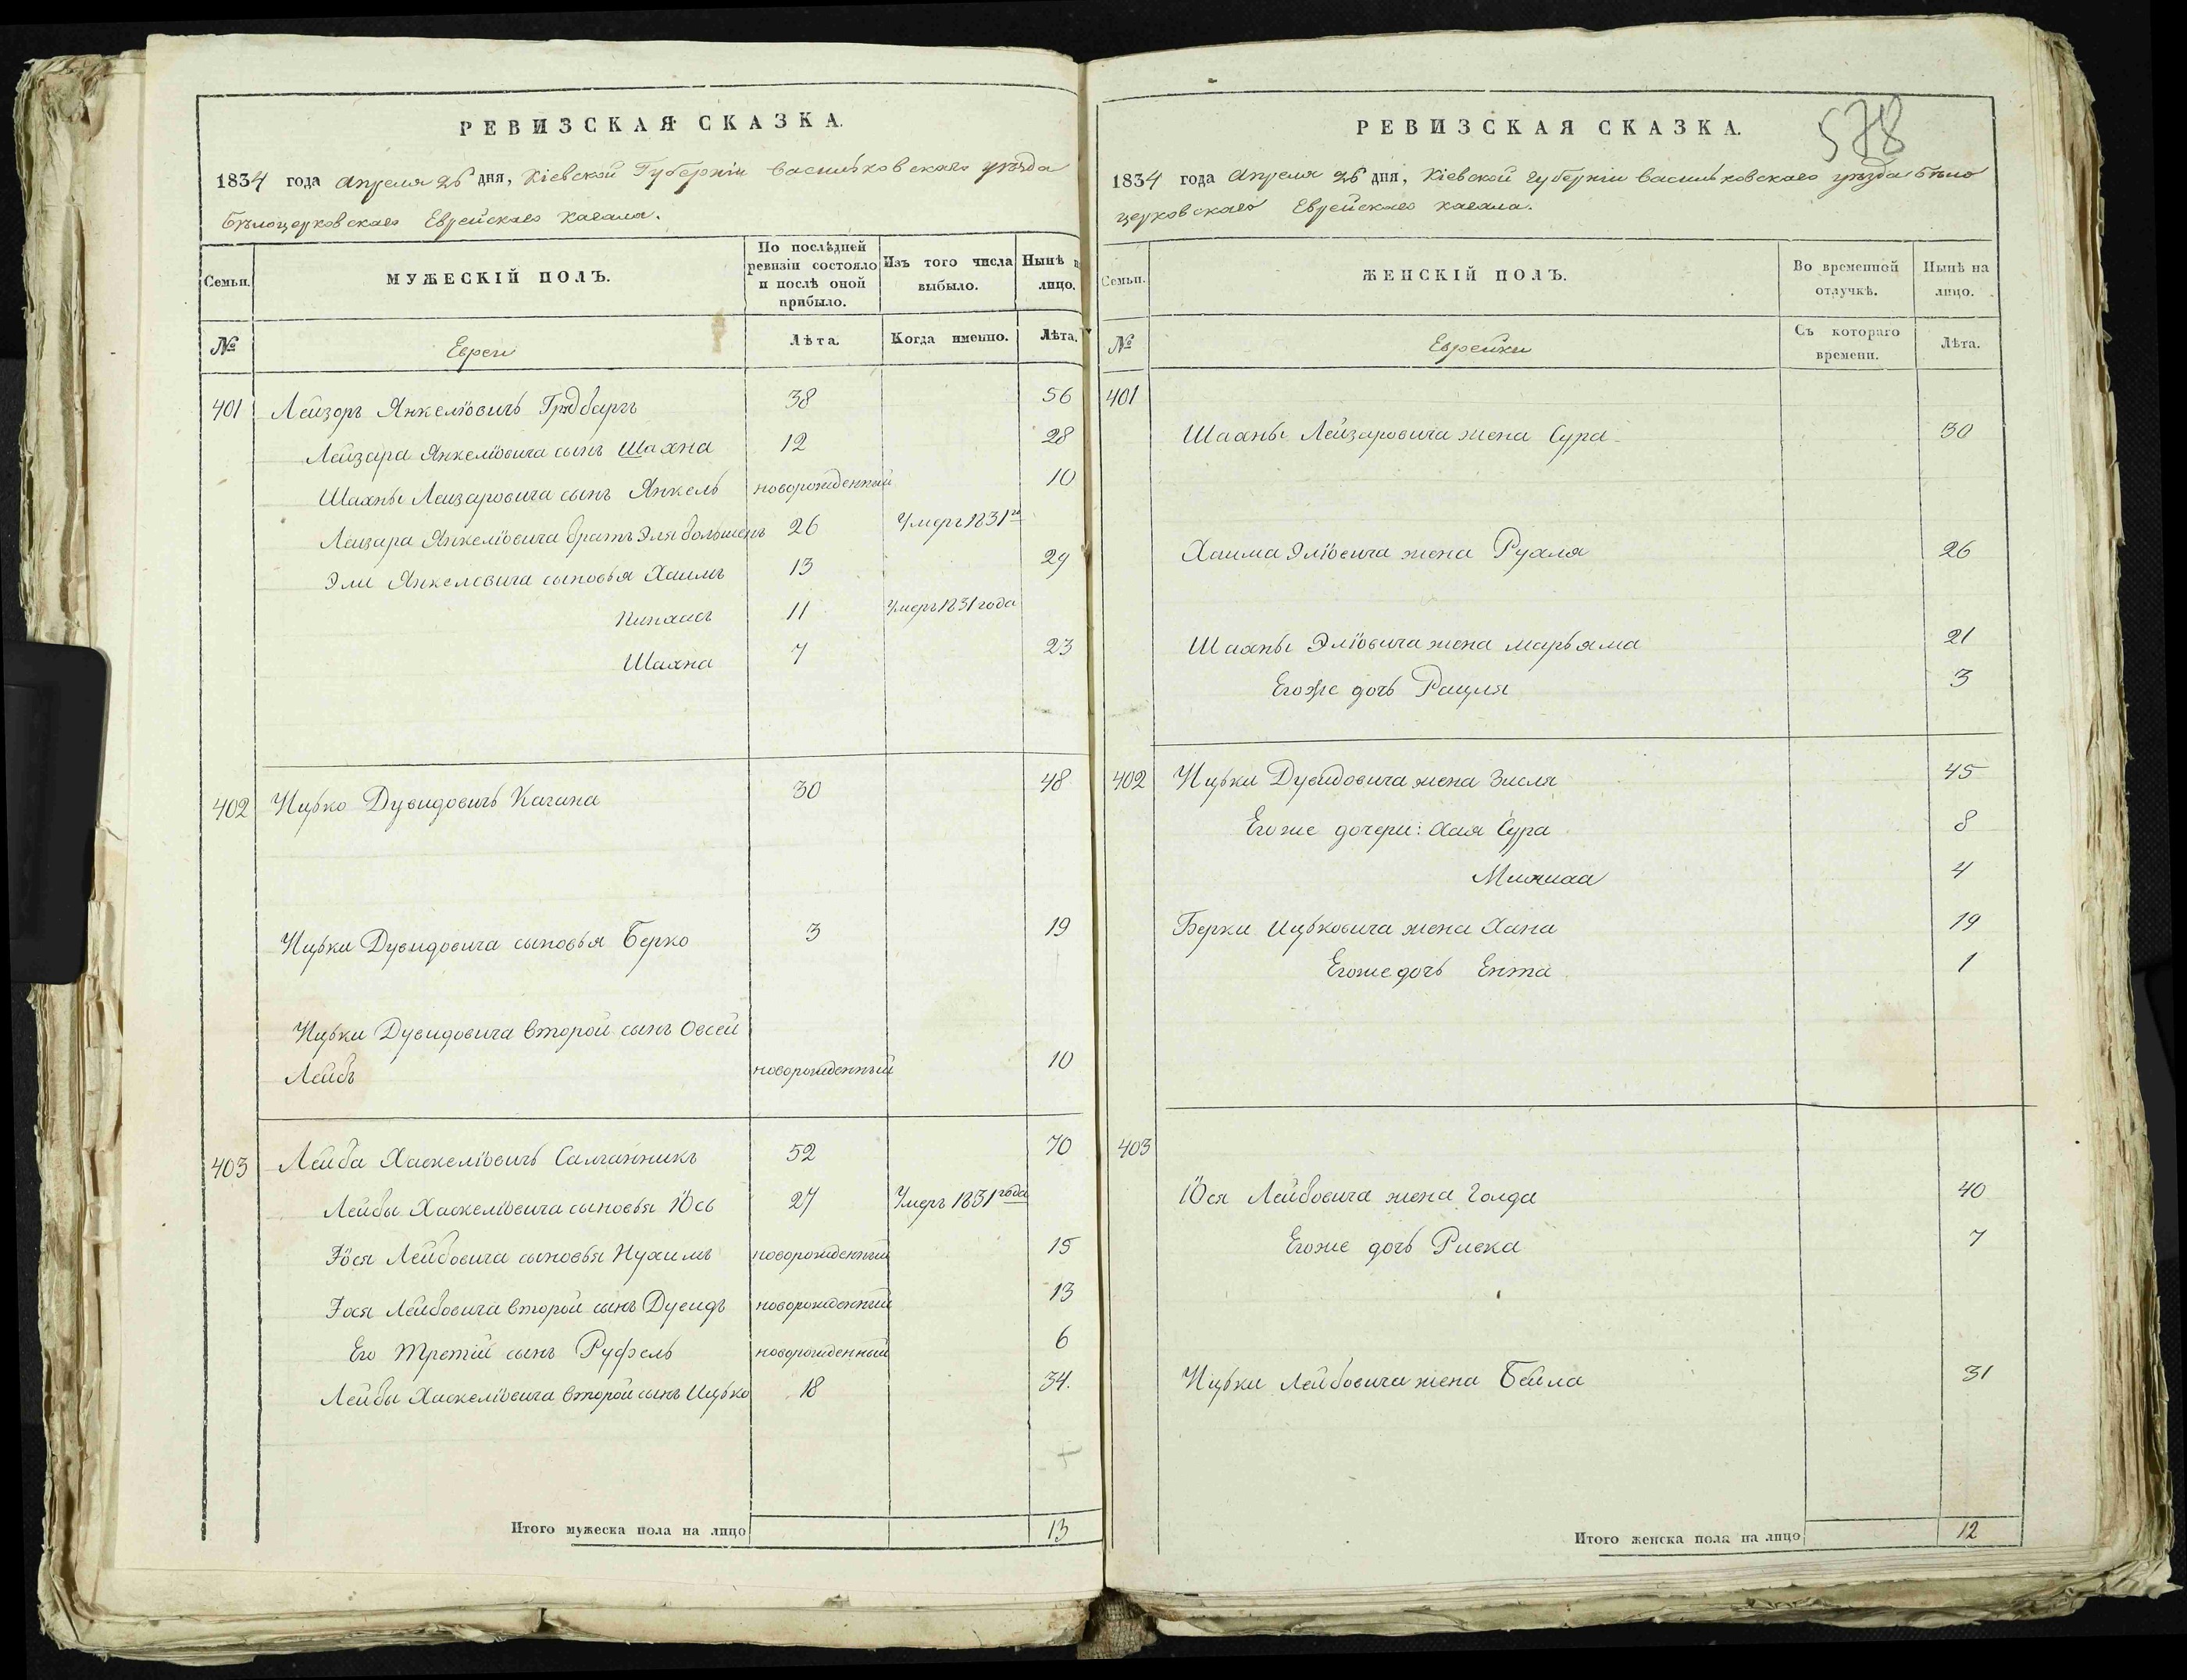 РЕВИЗСКАЯ СКАЗКА.
1834 года Апреля 25 дня, Кіевской Губерніи Васильковскаго уѣзда
Бѣлоцерковскаго Еврейскаго Кагала.
Семьи. МУЖЕСКІЙ ПОЛЪ. По послѣдней ревизіи состояло и послѣ оной прибыло. Изъ того числа выбыло. Нынѣ на лицо.
№ Евреи Лѣта. Когда именно. Лѣта.
401 Лейзоръ Янкеліовичъ 38 56
Лейзара Янкеліовича сынъ Шахна 12 28
Шахны Лейзаровича сынъ Янкель новорожденный 10
Лейзара Янкеліовича братъ Эля большенъ 26 Умеръ 1831 го
Эли Янкеловича сыновья Хаимъ 13 29
Пинхасъ 11 Умеръ 1831 года
Шахна 7 23
402 Ицько Дувидовичъ Кагана 30 48
Ицьки Дувидовича сыновья Берко 3 19
Ицьки Дувидовича второй сынъ Овсей
Лейбъ новорожденный 10
403 Лейба Хаскеліовичъ Салганникъ 52 70
Лейбы Хаскеліовича сыновья Іось 27 Умеръ 1831 года
Іося Лейбовича сыновья Нухимъ новорожденный 15
Іося Лейбовича второй сынъ Дувидъ новорожденный 13
Его третій сынъ Руфель новорожденный 6
Лейбы Хаскеліовича второй сынъ Ицько 18 34.
Итого мужеска пола на лицо 13
578
РЕВИЗСКАЯ СКАЗКА.
1834 года Апреля 25 дня, Кіевской Губерніи Васильковскаго уѣзда Бѣло
церковскаго Еврейскаго Кагала.
Семьи. ЖЕНСКІЙ ПОЛЪ. Во временной отлучкѣ. Нынѣ на лицо.
№ Еврейки Съ котораго времени. Лѣта.
401
Шахны Лейзаровича жена Сура 30
Хаима Эліовича жена Рухля 26
Шахны Эліовича жена Марьяма 21
Егоже дочь Рацля 3
402 Ицьки Дувидовича жена Зисля 45
Егоже дочери: Хая Сура 8
4
Берки Ицьковича жена Хана 19
Егоже дочь Ента 1
403
Іося Лейбовича жена Голда 40
Егоже дочь Ривка 7
Ицьки Лейбовича жена Бейла 31
Итого женска пола на лицо 12